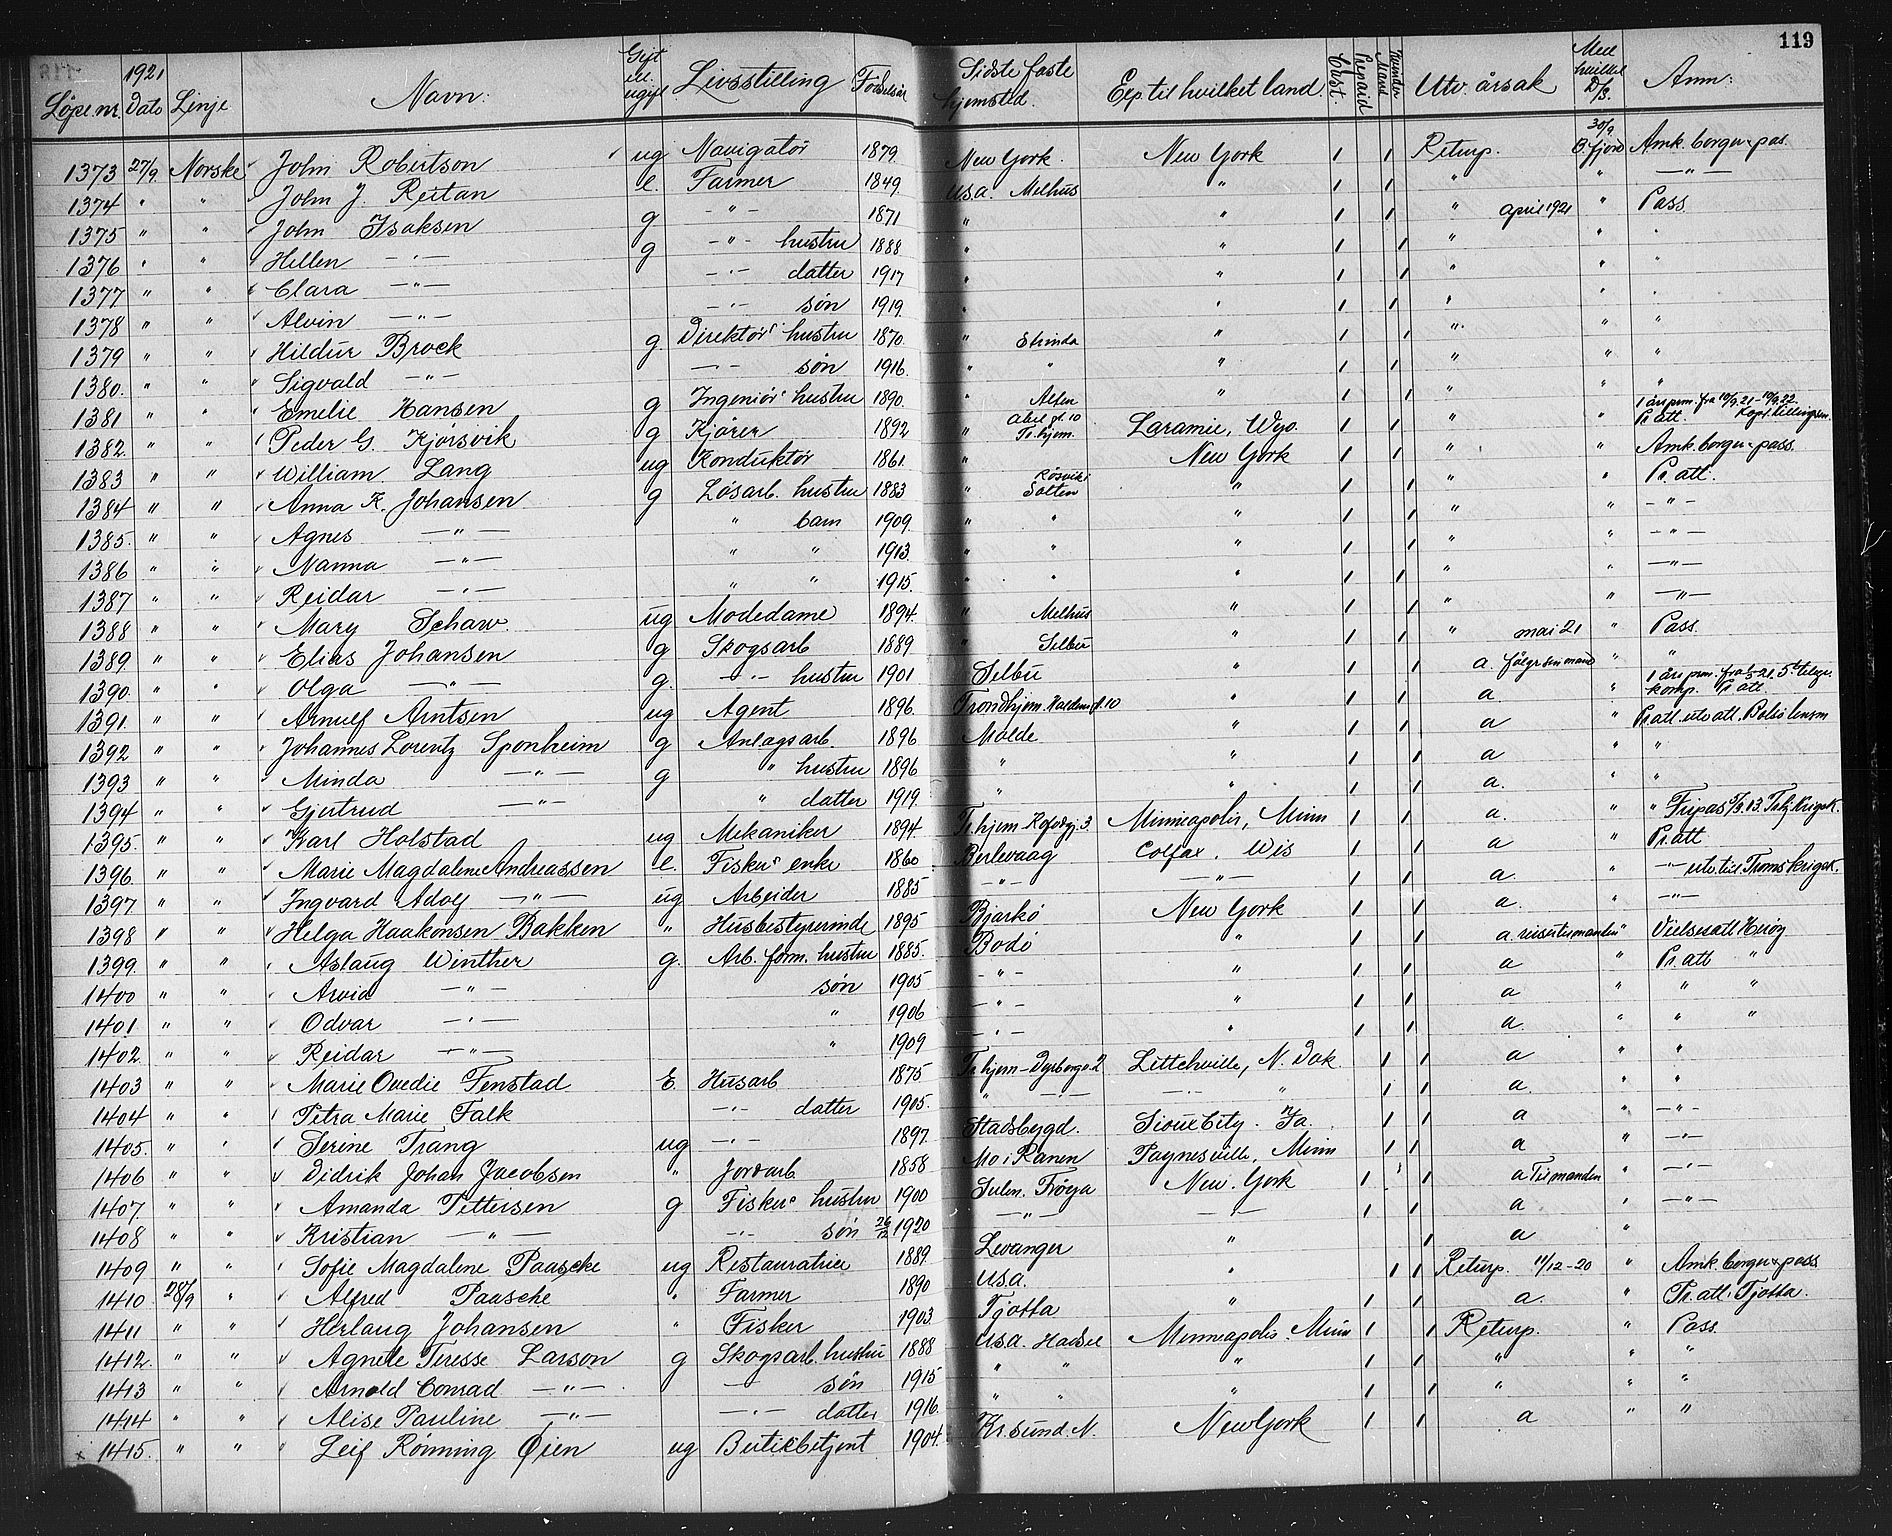 119
1921 Gift el. ugift Sidste faste Cust. Prepaid Mand Kvinder Med hvilket
Löpe.nr. Dato Linje Navn: Livsstilling Fødselsår hjemsted. Exp. til hvilket land. Utv. årsak D/S. Anm:
1373 27/9. Norske John Robertson ug Navigatör 1879. New York. New York 1 1 Returp. 30/9 B. fjord Amk. borger pas.
1374 " " John J. Reitan e. Farmer 1849. U.s.a. Melhus " 1 1 " " —"—
1375 " " John Isaksen g —"— 1871 " " 1 1 " april 1921 " Pass
1376 " " Hellen —"— g —"— hustru 1888 " " 1 1 " " "
1377 " " Clara —"— —"— datter 1917 " " 1 1 " " "
1378 " " Alvin —"— —"— sön 1919. " " 1 1 " " "
1379 " " Hildur Brock g. Direktörs hustru 1870. " Strinda " 1 1 " " "
1380. " " Sigvald —"— —"— sön 1916. " " " 1 1 " " "
1381 " " Emelie Hansen g Ingeniörs hustru 1890. " " 1 1 " " 1 års prm. fra 10/9.21–10/9.22.
1382. " " Peder G. Kjörsvik g Kjörer 1892 " Tr.hjem. Laramie, Wyo. 1 1 " " Pr. att.
1383 " " William Lang ug Konduktör 1861. " New York 1 1 " " Amk. borger pass.
1384 " " Anna K. Johansen g Lösarb. hustru 1883 " Rösvik Salten " 1 1 " " Pr. att.
1385. " " Agnes —"— " barn 1909. " " " 1 1 " " —"—
1386 " " Nanna —"— " " 1913. " " " 1 1 " " —"—
1387 " " Reidar —"— " " 1915. " " " 1 1 " " —"—
1388 " " Mary Schaw. ug Modedame 1894. " Melhus " 1 1 " " —"—
1389. " " Elias Johansen g Skogsarb 1889. " Selbu " 1 1 " mai 21 " Pass.
1390. " " Olga —"— g. —"— hustru 1901 Selbu " 1 1 a. følger sin mand " "
1391. " " Arnulf Arntsen ug Agent 1896. Trondhjem. " 1 1 a. " komp. Pr. att.
1392 " " Johannes Lorentz Sponheim g Anlagsarb. 1896 Molde " 1 1 a " Pr. att. utv. att.
1393 " " Minda —"— g " hustru 1896 " " 1 1 a " "
1394 " " Gjertrud —"— " datter 1919. " " 1 1 a. " "
1395. " " Karl Holstad ug Mekaniker 1894 Tr.hjem Minneapolis, Minn 1 1 a. " " Fripas
1396. " " Marie Magdalene Andreassen e. Fiskers enke 1860 Berlevaag Colfax, Wis 1 1 a " Pr. att
1397. " " Ingvard Adolf —"— ug Arbeider 1885 —"— —"— 1 1 a. " —"— utv. til Troms Krigsk.
1398 " " Helga Haakonsen Bakken " Husbestyrerinde 1895 Bjarkö New York 1 1 a. " —"—
1399. " " Aslaug Winther g. Arb. form. hustru 1885. Bodö " 1 1 a. reiser til manden " Vielsesatt
1400 " " Arvid —"— sön 1905 —"— " 1 1 a " Pr. att "
1401. " " Odvar —"— " 1906 —"— " 1 1 a " " "
1402. " " Reidar —"— " 1909 —"— " 1 1 a. " " "
1403 " " Marie Ovedie Fenstad E. Husarb 1875 Tr.hjem – Litchville, N. Dak 1 1 a " "
1404 " " Petra Marie Falk —"— datter 1905. " —"— —"— " 1 1 a. " "
1405. " " Serine Trang ug —"— 1897. Stadsbygd. Sioux City. Ia. 1 1 a " —"—
1406 " " Didrik Johan Jacobsen " Jordarb. 1858 Mo i Ranen Paynesville, Minn 1 1 a " —"—
1407 " " Amanda Pettersen g Fiskers hustru 1900 Sulen. Fröya New York 1 1 a Til manden " —"—
1408 " " Kristian —"— —"— sön 26/12 1920 —"— —"— 1 1 a " —"—
1409 " " Sofie Magdalene Paasche ug Restauratrice 1889. Levanger " 1 a "
1410. 28/9 " Alfred Paasche " Farmer 1890 U.s.a. " 1 1 Returp. 11/12–20 " Amk. borger pass
1411 " " Herlaug Johansen " Fisker 1903 Tjotta " 1 1 a. " Pr. att. Tjotta.
1412. " " Agnete Teresse Larson g Skogsarb. hustru 1888 U.s.a. Hadsel Minneapolis. Minn 1 1 Returp. " Pass
1413 " " Arnold Conrad —"— —"— sön 1915 " " " 1 1 " " "
1414 " " Alise Pauline —"— —"— datter 1916. " " " 1 1 " " "
x 1415. " " Leif Rönning Øien ug Butikbetjent 1904. Kr.sund. N. New York 1 1 a " "